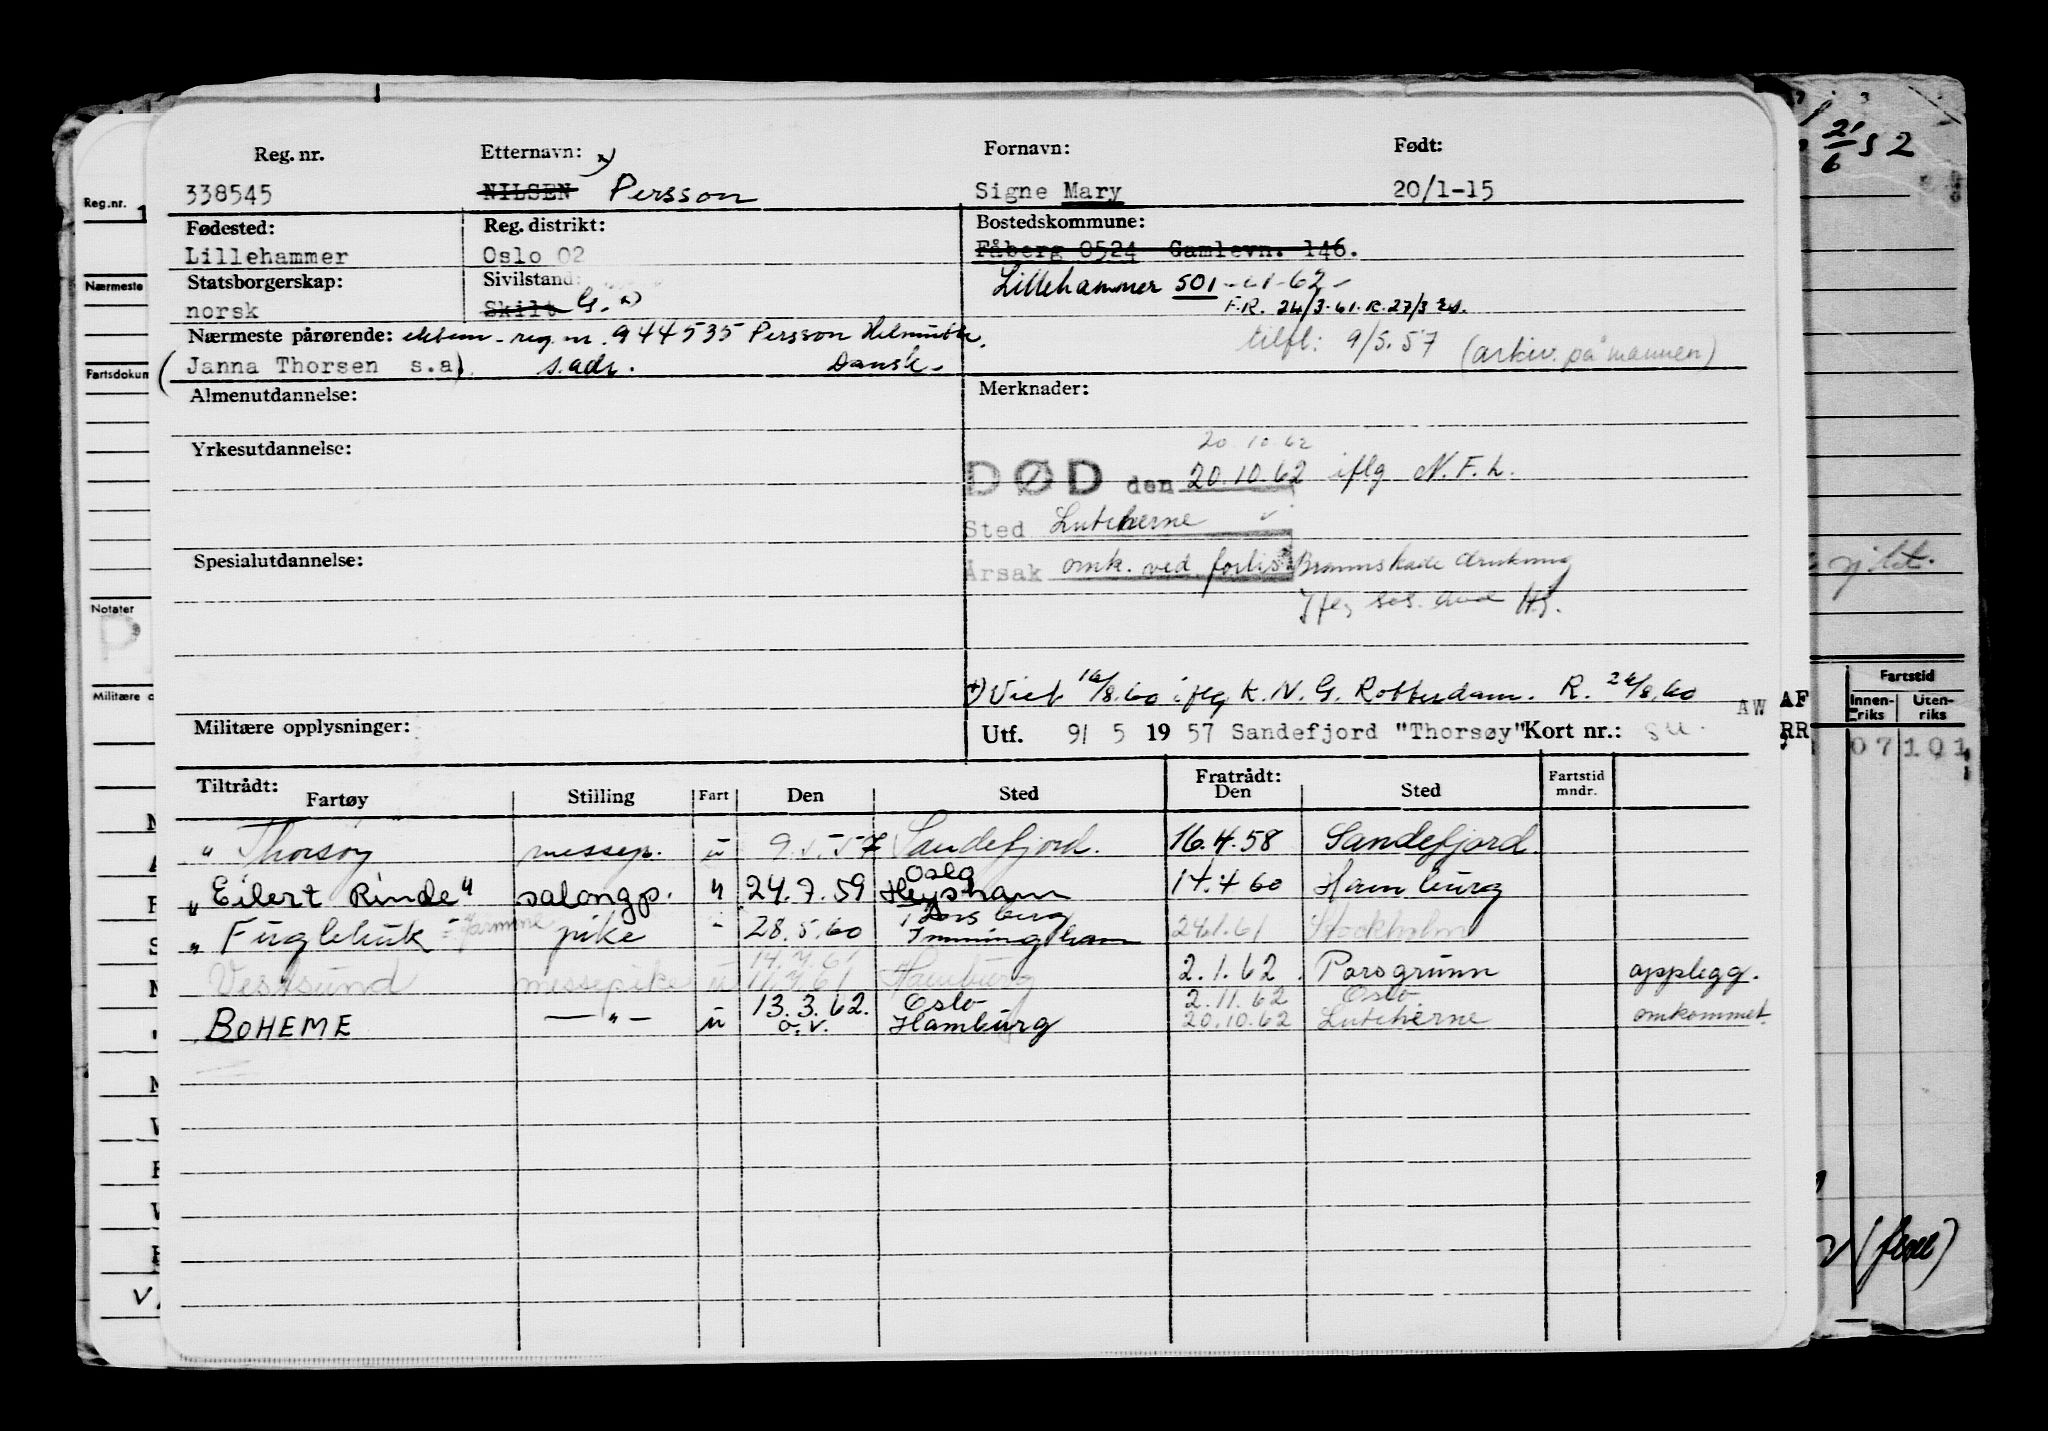 Reg. nr. Etternavn: x) Fornavn: Født:
338545 NILSEN Persson Signe Mary 20/1-15
Fødested: Reg. distrikt: Bostedskommune:
Lillehammer Oslo 02 Fåberg 0524 Gamlevn. 146.
Statsborgerskap: Sivilstand: Lillehammer 501
norsk Skilt G. x) F.R. 24/3-61. R. 27/3
Nærmeste pårørende: ektem - reg. nr. 944535 Persson
tilfl: 9/5.57 (arkiv. på mannen)
(Janna Thorsen s.a). s. adr. Dansk.
Almenutdannelse: Merknader:
Yrkesutdannelse: 20.10.62
DØD den 20.10.62 iflg N.F.h.
Sted Lutcherne
Spesialutdannelse: Årsak omk. ved forlis. Brannskade drukning
x) Viet 16/8.60 iflg K.N.G. Rotterdam. R. 26/8.60
AW AF
Militære opplysninger: Utf. 9/ 5 19 57 Sandefjord "Thorsøy" Kort nr.:
RR
Tiltrådt: Fratrådt:
Fartøy Stilling Fart Den Sted Den Sted Fartstid mndr.
" Thorsøy messep. u 9.5.57 Sandefjord. 16.4.58 Sandefjord.
Oslo
"Eilert Rinde" salongp. " 24.7.59 Heysham 14.4 60 Hamburg
Tønsberg
" Fuglehuk pike " 28.5.60 Immingham 24.1.61 Stockholm
14.4.61
Vestsund messepike u 11.4.61 Hamburg 2.1.62. Porsgrunn opplegg.
13.3.62. Oslo 2.11.62 Oslo
BOHEME — " — u o.v. Hamburg 20.10.62 Lutcherne omkommet.
Reg.nr. 1
Nærmeste
Fartsdokum
Notater
P
Militære o
21/6 52
Fartstid
Innen-riks Uten-riks
07 101